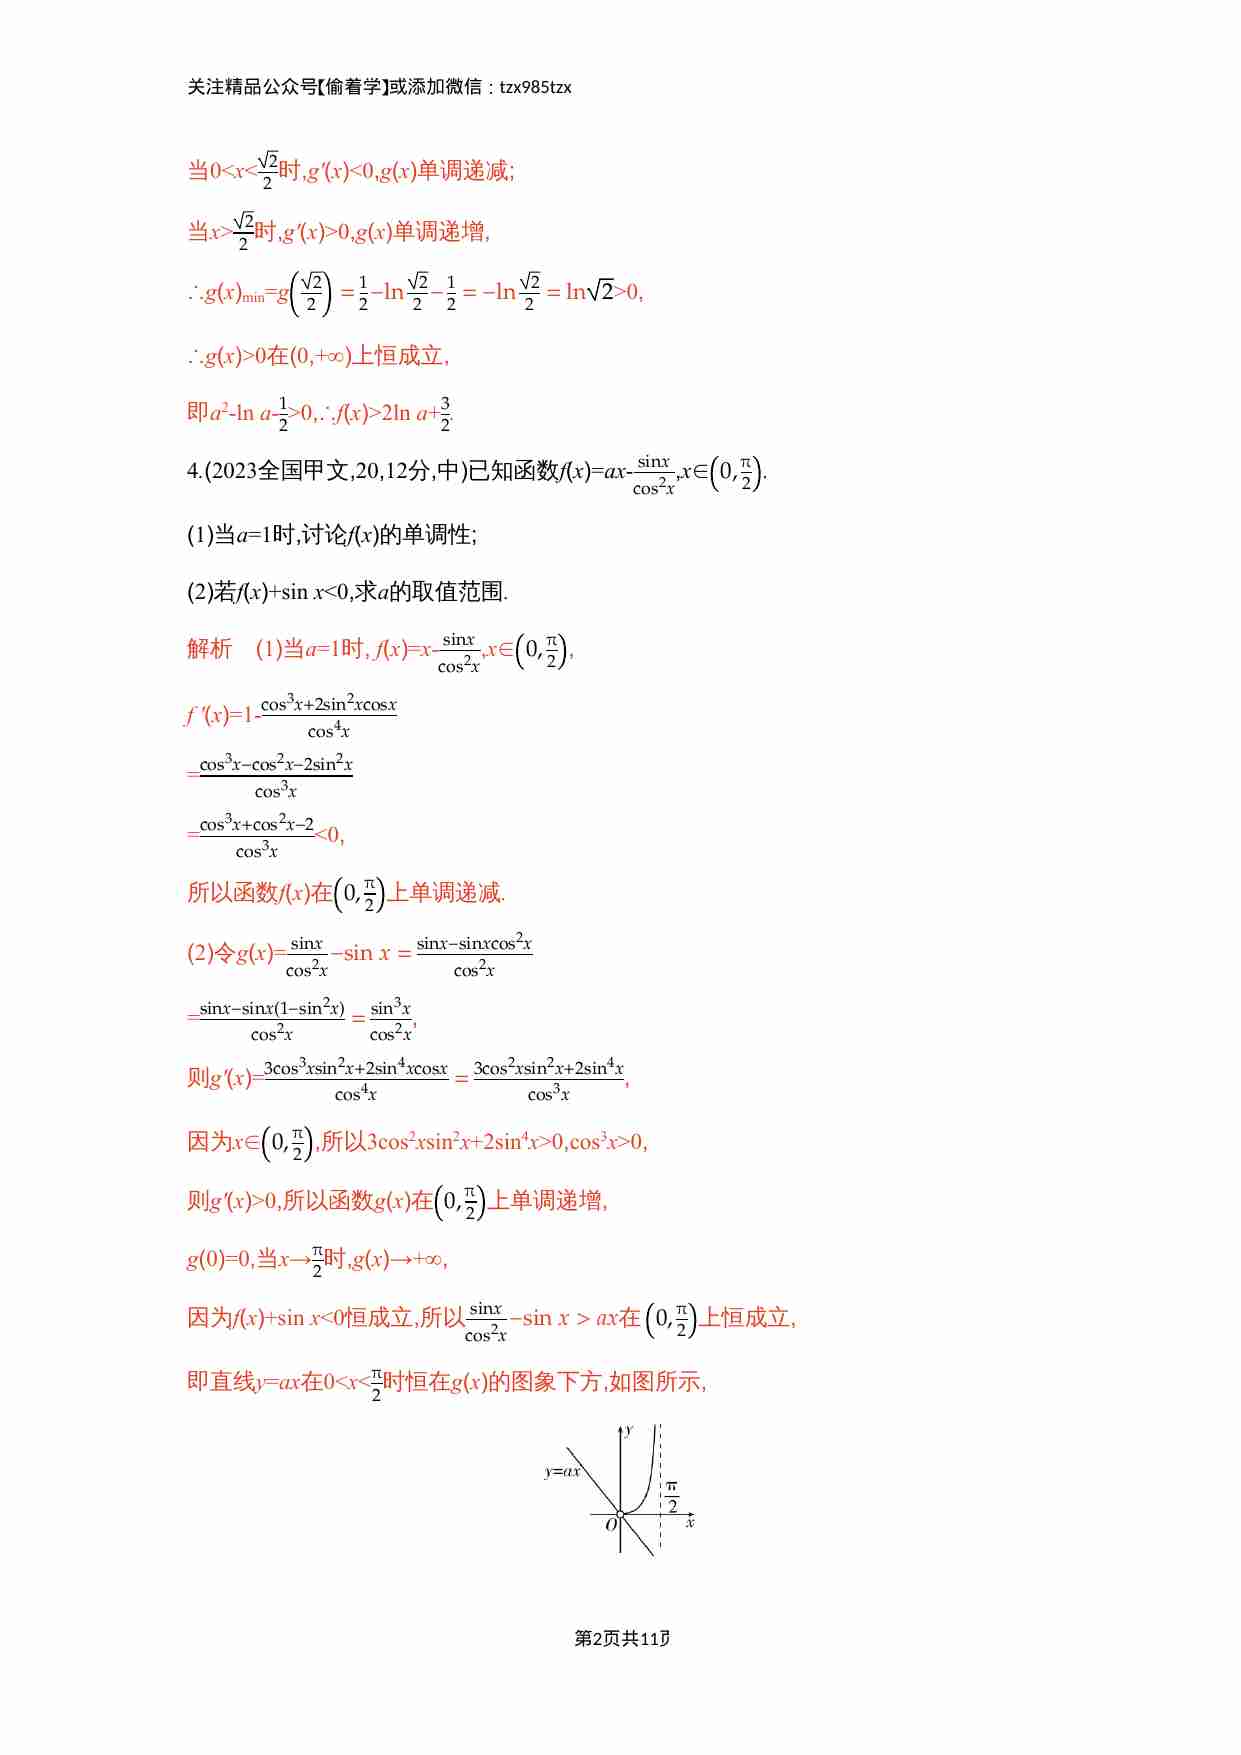 关注精品公众号【偷着学】或添加微信：tzx985tzx
当0<x<√2/2时,g'(x)<0,g(x)单调递减;
当x>√2/2时,g'(x)>0,g(x)单调递增,
∴g(x)min=g(√2/2)=1/2−ln√2/2−1/2=−ln√2/2=ln√2>0,
∴g(x)>0在(0,+∞)上恒成立,
即a²-ln a-1/2>0,∴f(x)>2ln a+3/2.
4.(2023全国甲文,20,12分,中)已知函数f(x)=ax-sinx/cos²x,x∈(0,π/2).
(1)当a=1时,讨论f(x)的单调性;
(2)若f(x)+sin x<0,求a的取值范围.
解析 (1)当a=1时, f(x)=x-sinx/cos²x,x∈(0,π/2),
f '(x)=1-(cos³x+2sin²xcosx)/cos⁴x
=(cos³x−cos²x−2sin²x)/cos³x
=(cos³x+cos²x−2)/cos³x<0,
所以函数f(x)在(0,π/2)上单调递减.
(2)令g(x)=sinx/cos²x−sin x=(sinx−sinxcos²x)/cos²x
=(sinx−sinx(1−sin²x))/cos²x=sin³x/cos²x,
则g'(x)=(3cos³xsin²x+2sin⁴xcosx)/cos⁴x=(3cos²xsin²x+2sin⁴x)/cos³x,
因为x∈(0,π/2),所以3cos²xsin²x+2sin⁴x>0,cos³x>0,
则g'(x)>0,所以函数g(x)在(0,π/2)上单调递增,
g(0)=0,当x→π/2时,g(x)→+∞,
因为f(x)+sin x<0恒成立,所以sinx/cos²x−sin x>ax在(0,π/2)上恒成立,
即直线y=ax在0<x<π/2时恒在g(x)的图象下方,如图所示,
y
y=ax
π/2
O
x
第2页共11页